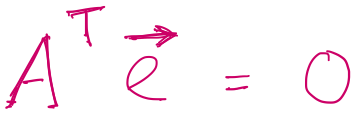 Aᵀ e⃗ = 0